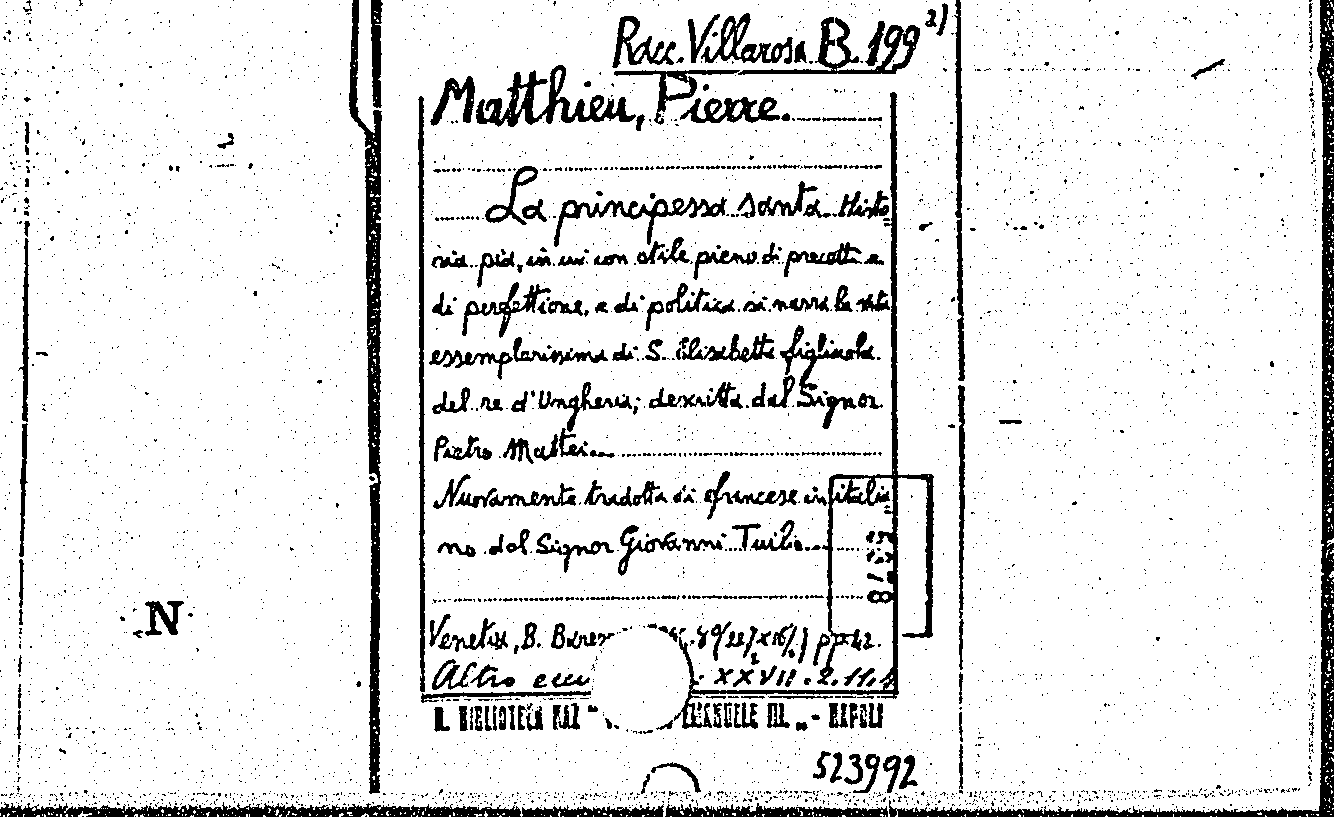 Racc. Villarosa B. 199 2)
Matthieu, Pierre.
La principessa santa. Histo=
ria pia, in cui con stile pieno di precetti e
di perfettione, e di politica si narra la vita
essemplarissima di S. Elisabetta figliuola
del re d'Ungheria; descritta dal Signor
Pietro Mattei...
Nuovamente tradotta di francese in italia=
no dal Signor Giovanni Tuilio...
Venetia, B.
Altro XXVII.2.11.
R. BIBLIOTECA NAZ " EMANUELE III. „ - NAPOLI
523992
N